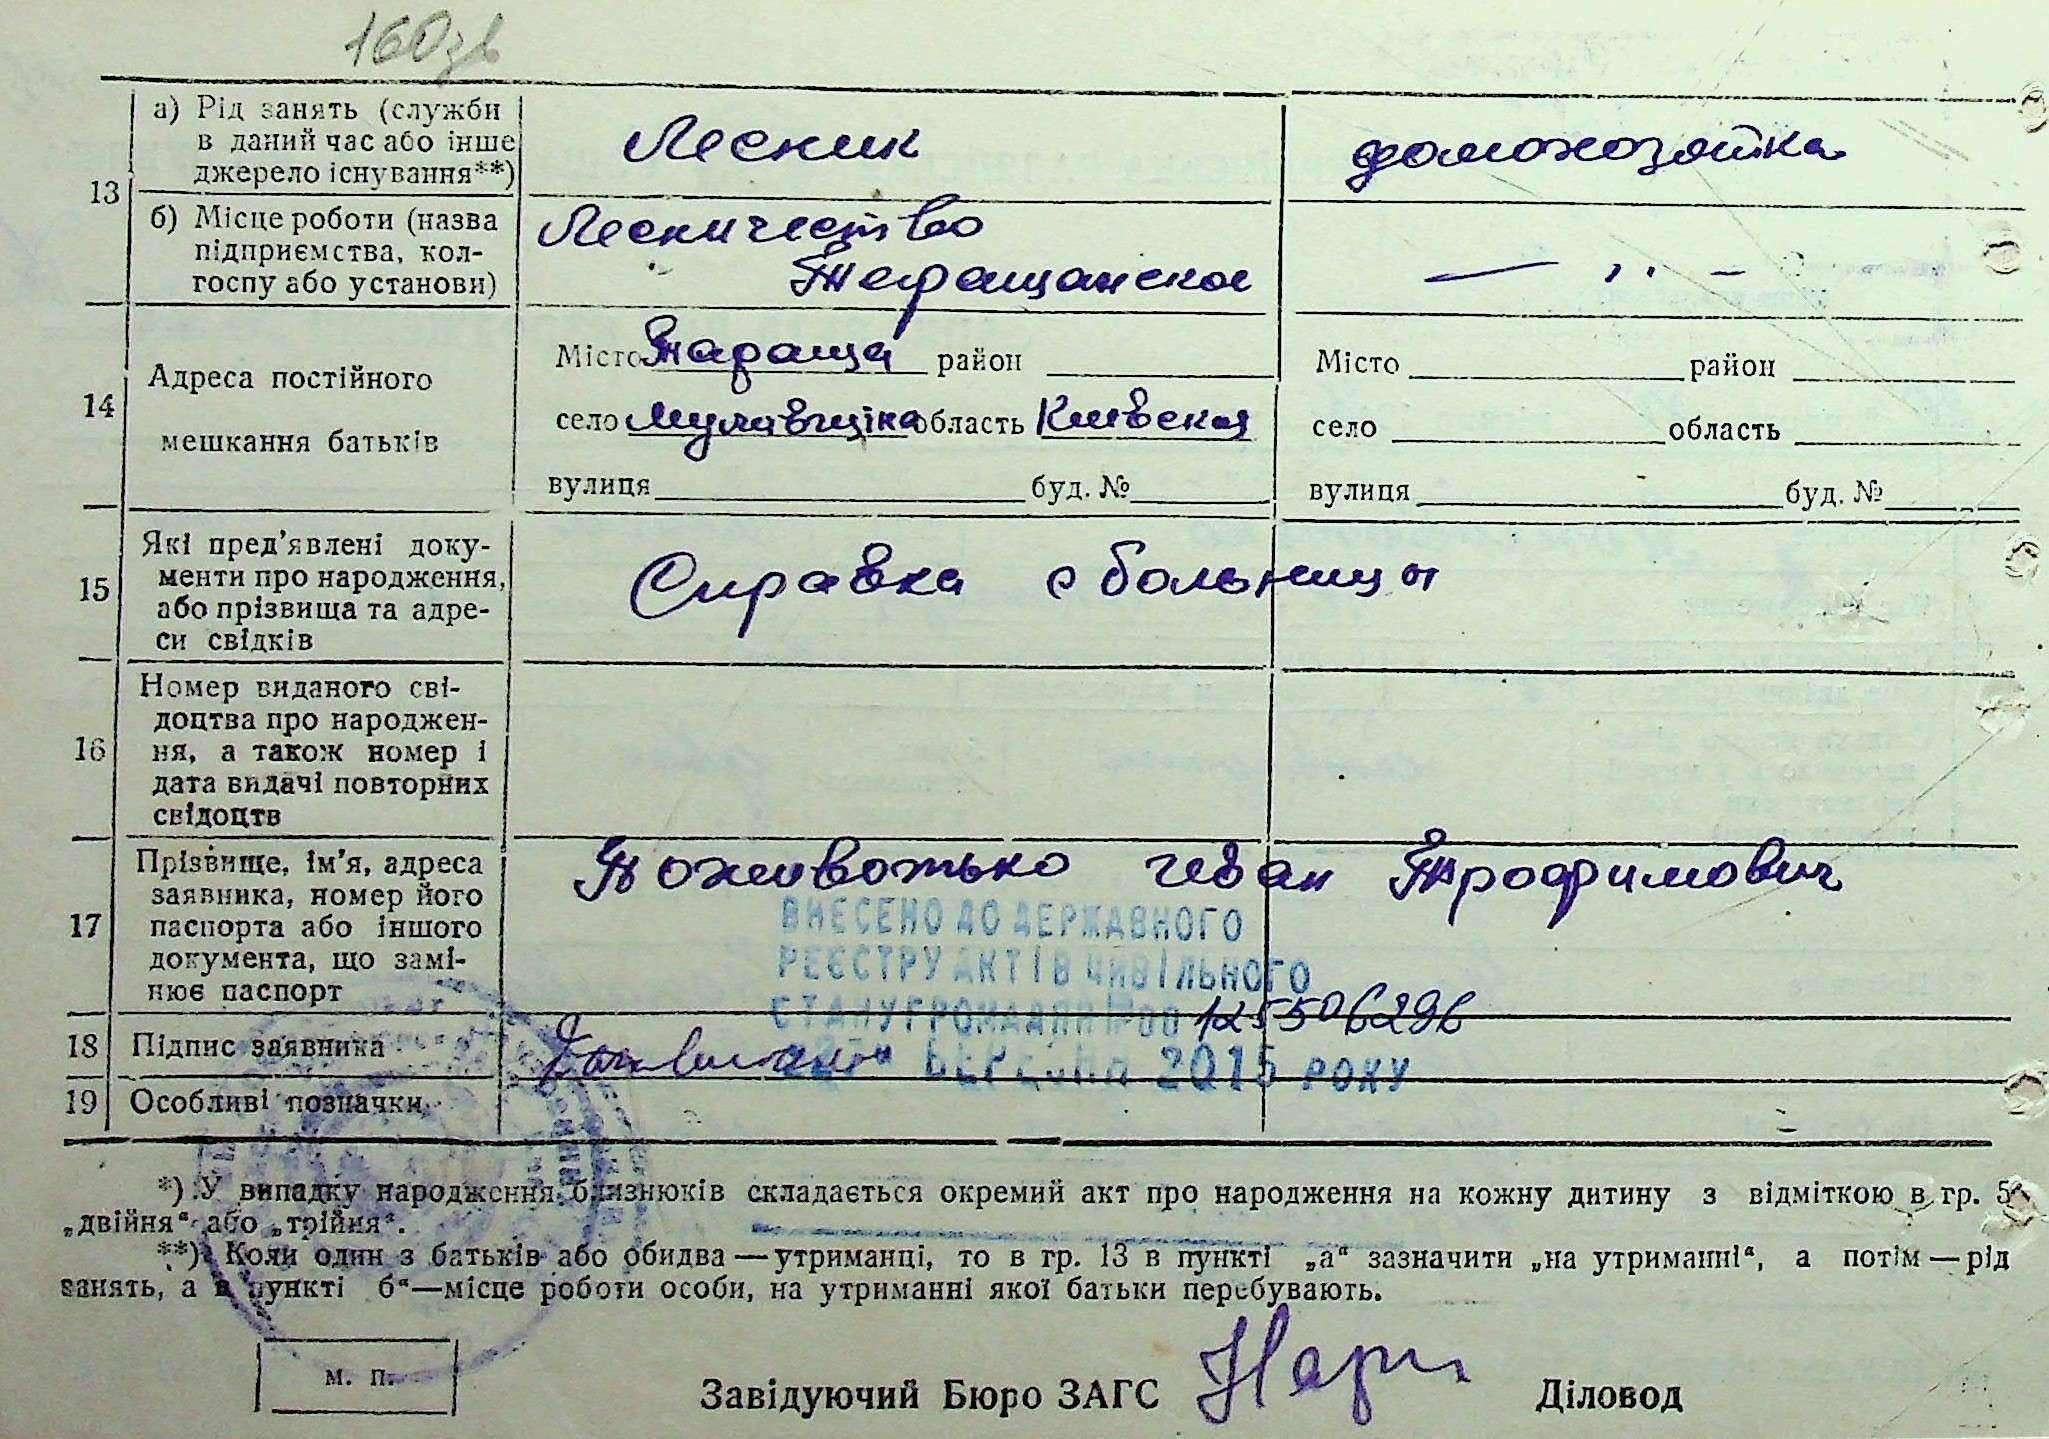 160зв
13 а) Рід занять (служби в даний час або інше джерело існування**)
Лесник
домохозяйка
б) Місце роботи (назва підприємства, колгоспу або установи)
Лесничество
Таращанское
— „ —
14 Адреса постійного мешкання батьків
Місто Тараща район
село область Киевская
вулиця буд. №
Місто район
село область
вулиця буд. №
15 Які пред’явлені документи про народження, або прізвища та адреси свідків
Справка с больницы
16 Номер виданого свідоцтва про народження, а також номер і дата видачі повторних свідоцтв
17 Прізвище, ім’я, адреса заявника, номер його паспорта або іншого документа, що замінює паспорт
Поживотько Иван Трофимович
ВНЕСЕНО ДО ДЕРЖАВНОГО
РЕЄСТРУ АКТІВ ЦИВІЛЬНОГО
СТАНУ ГРОМАДЯН №00 125506296
БЕРЕЗНЯ 2015 РОКУ
18 Підпис заявника
19 Особливі позначки
*) У випадку народження близнюків складається окремий акт про народження на кожну дитину з відміткою в гр. 5
„двійня“ або „трійня“.
**) Коли один з батьків або обидва — утриманці, то в гр. 13 в пункті „а“ зазначити „на утриманні“, а потім — рід
занять, а в пункті б“—місце роботи особи, на утриманні якої батьки перебувають.
м. п.
Завідуючий Бюро ЗАГС
Діловод